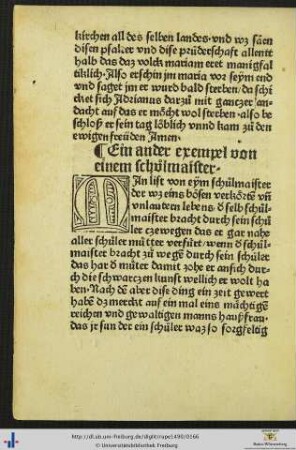 kirchen all des selben landes· vnd wz säen
disen psalter vnd dise prüderschaft allentt
halb das daz volck mariam eret manigfal
tiklich· Also erschin jm maria vor seym end
vnd saget jm er wurd bald sterben/ da schi
cket sich Adrianus darzů mit ganczer an
dacht auf das er möcht wol sterben· also be
schloß er sein tag löblich vnnd kam zů den
ewigen freüden Amen·
¶ Ein ander exempel von
einem schůlmaister·
MAn list von eym schůlmaister
der wz eins bösen verkörtē vñ
vnlautern lebens/ d̄ selb schůl
maister bracht durch sein schů
ler czewegen das er gar nahe
aller schůler můtter verfürt/ wenn d̄ schůl
maister bracht zů wege durch sein schůler
das har d̄ můter damit zohe er an sich dur
ch die schwarczen kunst wellich er wolt ha
ben· Nach dē aber dise ding ein zeit gewert
habē dz merckt auf ein mal eins mächtigē
reichen vnd gewaltigen manns haußfrau·
das jr sun der ein schůler waz so sorgfeltig
http://dl.ub.uni-freiburg.de/diglit/rupe1490/0166
© Universitätsbibliothek Freiburg
Baden-Württemberg